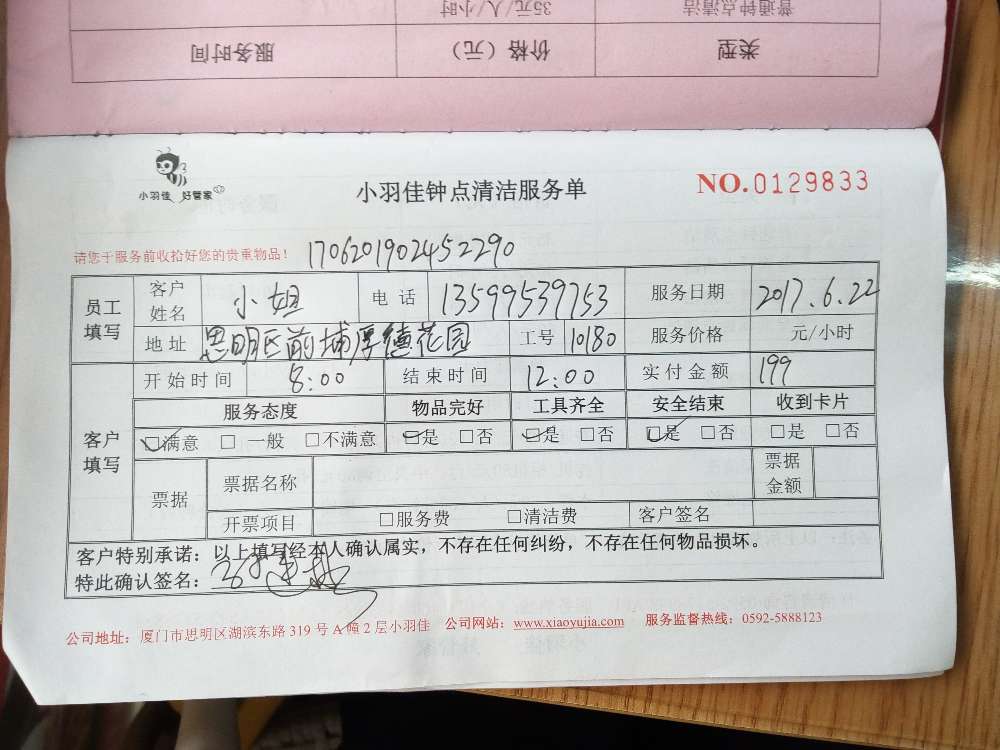 普通钟点清洁 35元/人/小时
类型 价格（元） 服务时间
小羽佳 好管家
小羽佳钟点清洁服务单
NO.0129833
请您于服务前收拾好您的贵重物品！ 1706201902452290
员工填写 客户姓名 小姐 电话 13599539753 服务日期 2017.6.22
地址 思明区前埔厚德花园 工号 10180 服务价格 元/小时
客户填写 开始时间 8:00 结束时间 12:00 实付金额 199
服务态度 物品完好 工具齐全 安全结束 收到卡片
☑满意 □一般 □不满意 ☑是 □否 ☑是 □否 ☑是 □否 □是 □否
票据 票据名称 票据金额
开票项目 □服务费 □清洁费 客户签名
客户特别承诺：以上填写经本人确认属实，不存在任何纠纷，不存在任何物品损坏。
特此确认签名：
公司地址：厦门市思明区湖滨东路 319 号 A 幢 2 层小羽佳 公司网站：www.xiaoyujia.com 服务监督热线：0592-5888123